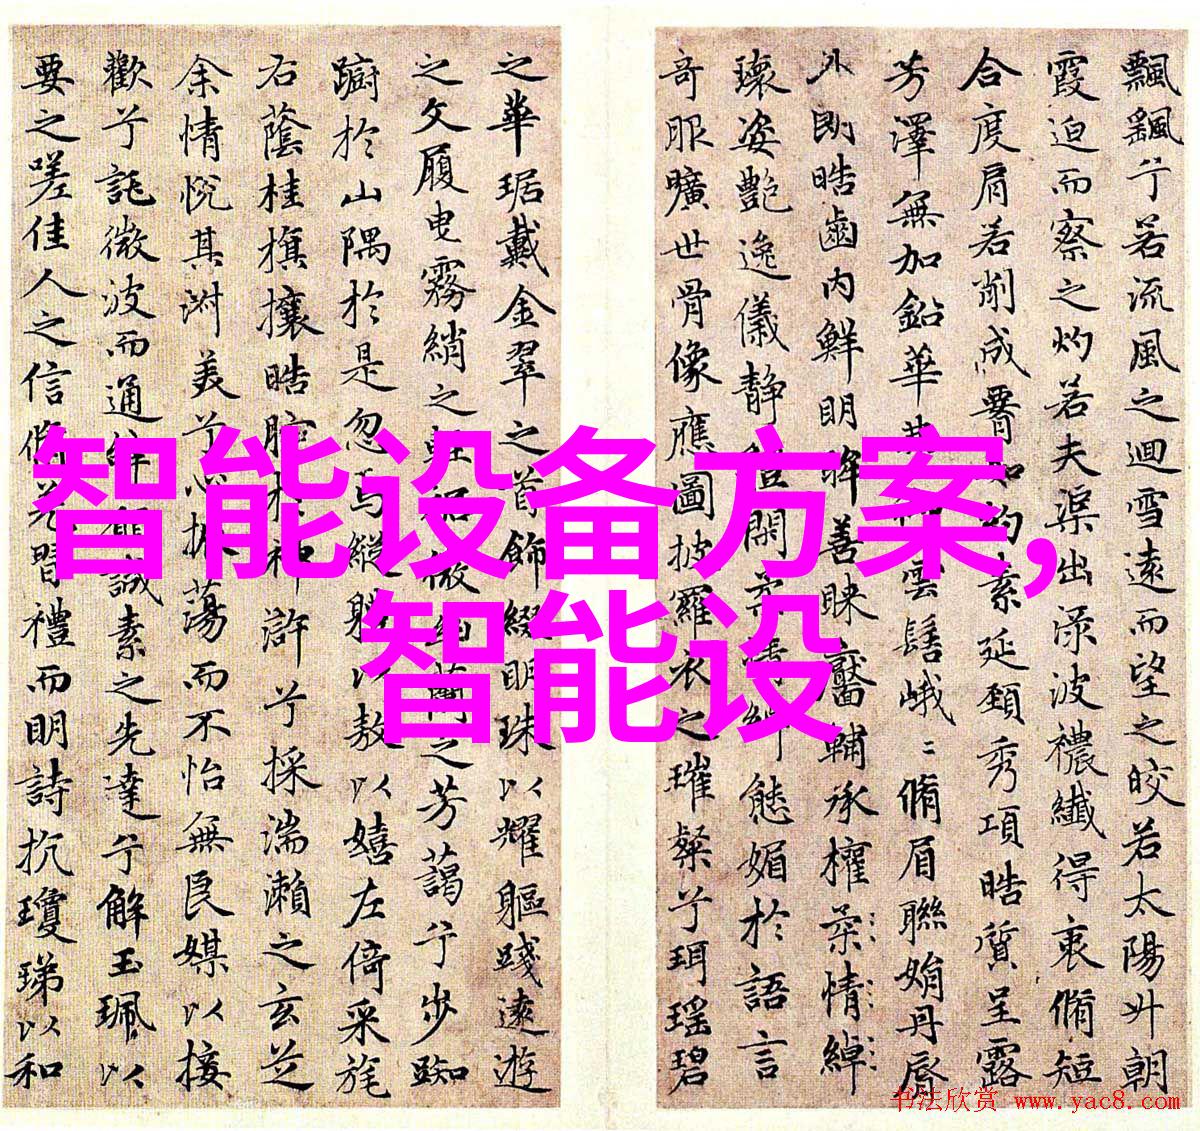 飄颻兮若流風之迴雪遠而望之皎若太陽升朝
霞迫而察之灼若夫渠出淥波穠纖得衷脩短
合度肩若削成如約素延頸秀項皓質呈露
芳澤無加鉛華雲髻峨〻脩眉聯娟丹脣
外朗皓齒內鮮明眸善睞靨輔承權柔情綽
瓌姿艷逸儀靜體閑柔情綽態媚於語言
奇服曠世骨像應圖披羅衣之璀粲兮珥瑤碧
之華琚戴金翠之首飾綴明珠以耀軀踐遠遊
之文履曳霧綃之輕裾微幽蘭之芳藹兮步踟
躕於山隅於是忽焉縱體以遨以嬉左倚采旄
右蔭桂旗攘皓腕於神滸兮採湍瀨之玄芝
余情悅其淑美兮心振蕩而不怡無良媒以接
歡兮託微波而通辭願誠素之先達兮解玉珮以
要之嗟佳人之信脩羌習禮而明詩抗瓊珶以和
智能设备方案,
智能设
书法欣赏 www.yac8.com